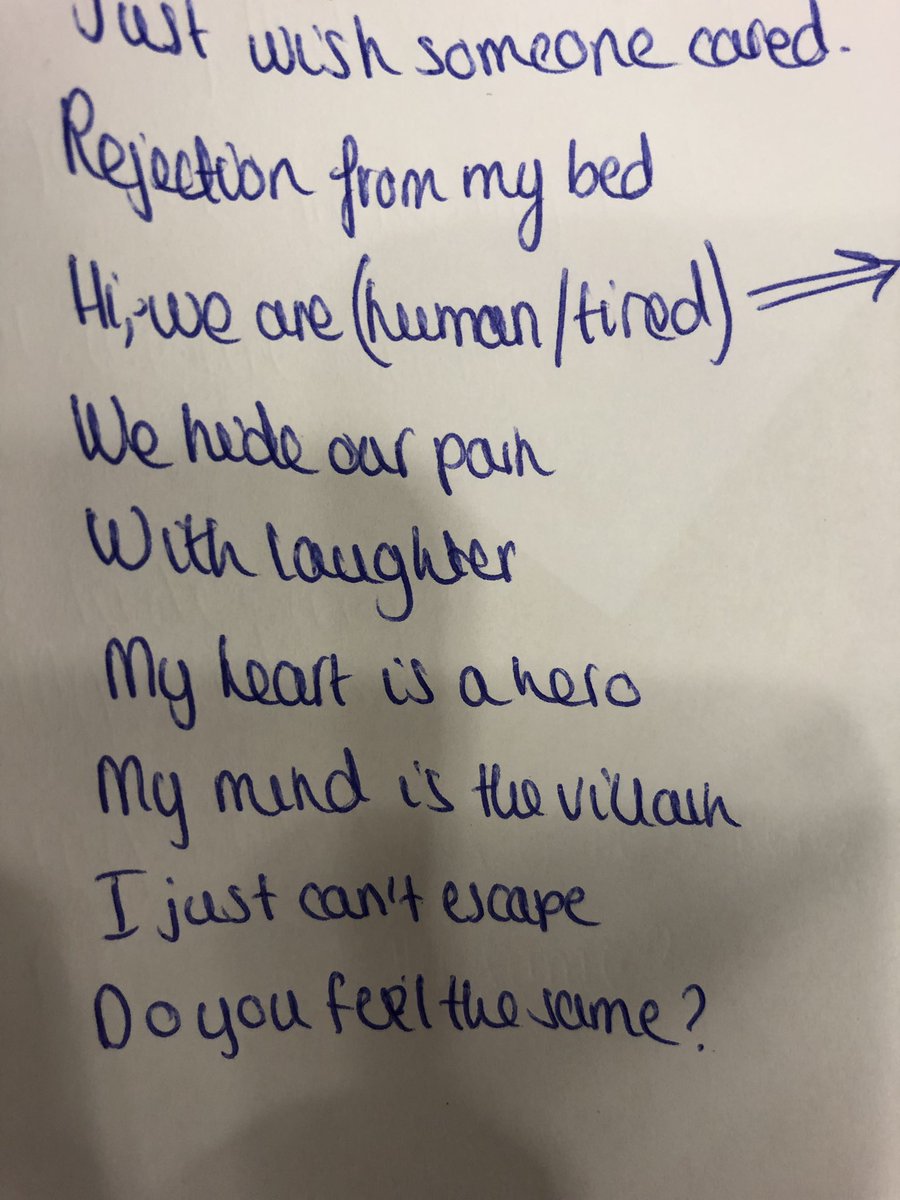 Just wish someone cared.
Rejection from my bed
Hi, we are (human/tired) ⇒
We hide our pain
With laughter
My heart is a hero
My mind is the villain
I just can't escape
Do you feel the same?